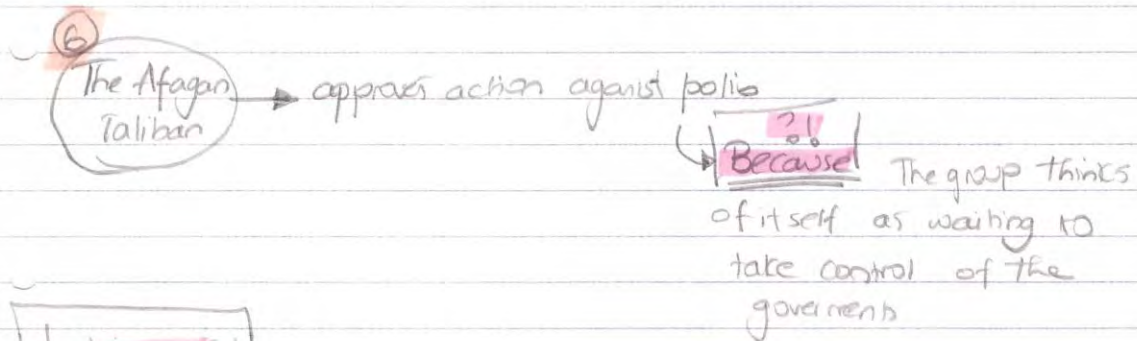 6
The Afagan
Taliban
approves action aganist polio
?!
Because The group thinks
of it self as waiting to
take control of the
government